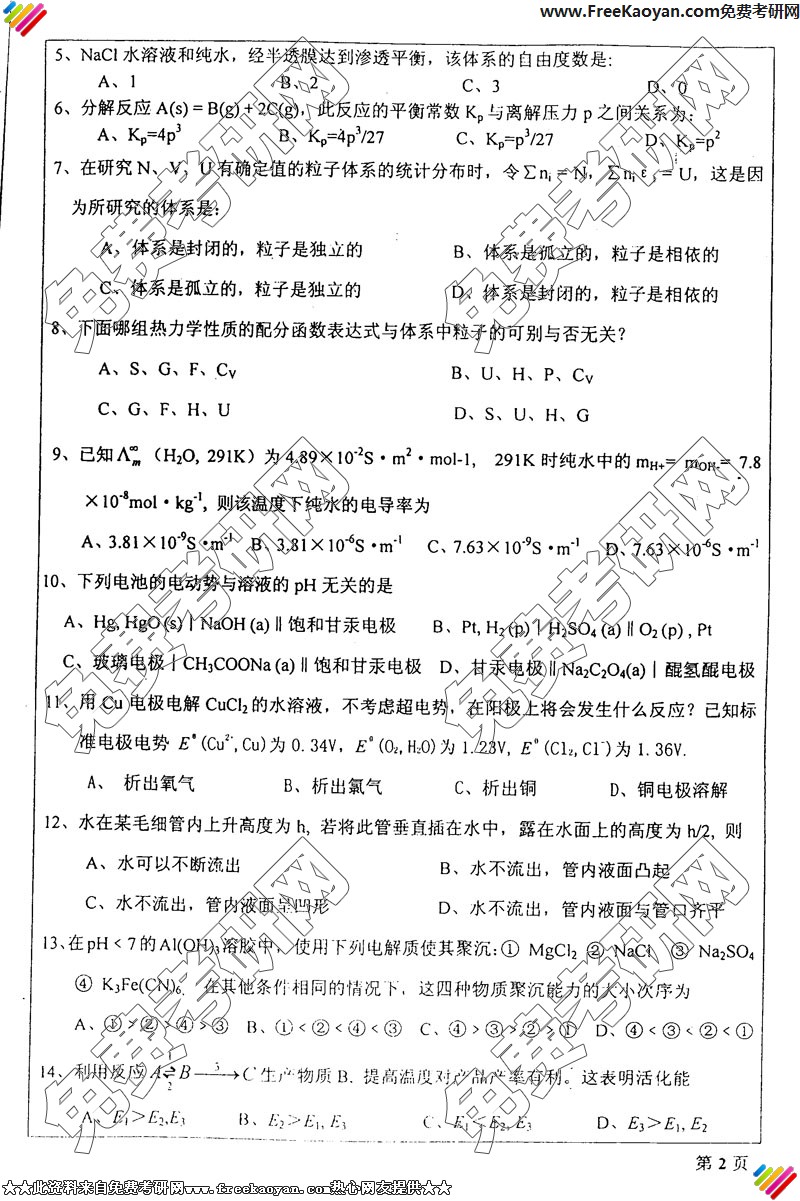 www.FreeKaoyan.com免费考研网
5、NaCl 水溶液和纯水，经半透膜达到渗透平衡，该体系的自由度数是：
A、1 B、2 C、3 D、0
6、分解反应 A(s) = B(g) + 2C(g)，此反应的平衡常数 Kp 与离解压力 p 之间关系为：
A、Kp=4p³ B、Kp=4p³/27 C、Kp=p³/27 D、Kp=p²
7、在研究 N、V、U 有确定值的粒子体系的统计分布时，令∑ni = N，∑niεi = U，这是因
为所研究的体系是：
A、体系是封闭的，粒子是独立的 B、体系是孤立的，粒子是相依的
C、体系是孤立的，粒子是独立的 D、体系是封闭的，粒子是相依的
8、下面哪组热力学性质的配分函数表达式与体系中粒子的可别与否无关？
A、S、G、F、Cv B、U、H、P、Cv
C、G、F、H、U D、S、U、H、G
9、已知Λm∞（H₂O, 291K）为 4.89×10⁻²S·m²·mol-1， 291K 时纯水中的 mH+= mOH-= 7.8
×10⁻⁸mol·kg⁻¹, 则该温度下纯水的电导率为
A、3.81×10⁻⁹S·m⁻¹ B、3.81×10⁻⁶S·m⁻¹ C、7.63×10⁻⁹S·m⁻¹ D、7.63×10⁻⁶S·m⁻¹
10、下列电池的电动势与溶液的 pH 无关的是
A、Hg, HgO (s)｜NaOH (a)‖饱和甘汞电极 B、Pt, H₂ (p)｜H₂SO₄ (a)‖O₂ (p) , Pt
C、玻璃电极｜CH₃COONa (a)‖饱和甘汞电极 D、甘汞电极‖Na₂C₂O₄(a)｜醌氢醌电极
11、用 Cu 电极电解 CuCl₂ 的水溶液，不考虑超电势，在阳极上将会发生什么反应？已知标
准电极电势 Eθ(Cu²⁺,Cu)为 0.34V, Eθ(O₂,H₂O)为 1.23V, Eθ(Cl₂,Cl⁻)为 1.36V.
A、 析出氧气 B、析出氯气 C、析出铜 D、铜电极溶解
12、水在某毛细管内上升高度为 h, 若将此管垂直插在水中，露在水面上的高度为 h/2, 则
A、水可以不断流出 B、水不流出，管内液面凸起
C、水不流出，管内液面呈凹形 D、水不流出，管内液面与管口齐平
13、在 pH < 7 的 Al(OH)₃ 溶胶中，使用下列电解质使其聚沉:① MgCl₂ ② NaCl ③ Na₂SO₄
④ K₃Fe(CN)₆. 在其他条件相同的情况下，这四种物质聚沉能力的大小次序为
A、①>②>④>③ B、①<②<④<③ C、④>③>②>① D、④<③<②<①
14、利用反应 A⇌B→C 生产物质 B. 提高温度对产品产率有利。这表明活化能
1
2
3
A、E₁>E₂,E₃ B、E₂>E₁, E₃ C、E₁<E₂,E₃ D、E₃>E₁, E₂
第 2 页
★★此资料来自免费考研网www.freekaoyan.com热心网友提供★★
免费考研网
免费考研网
免费考研网
免费考研网
免费考研网
免费考研网